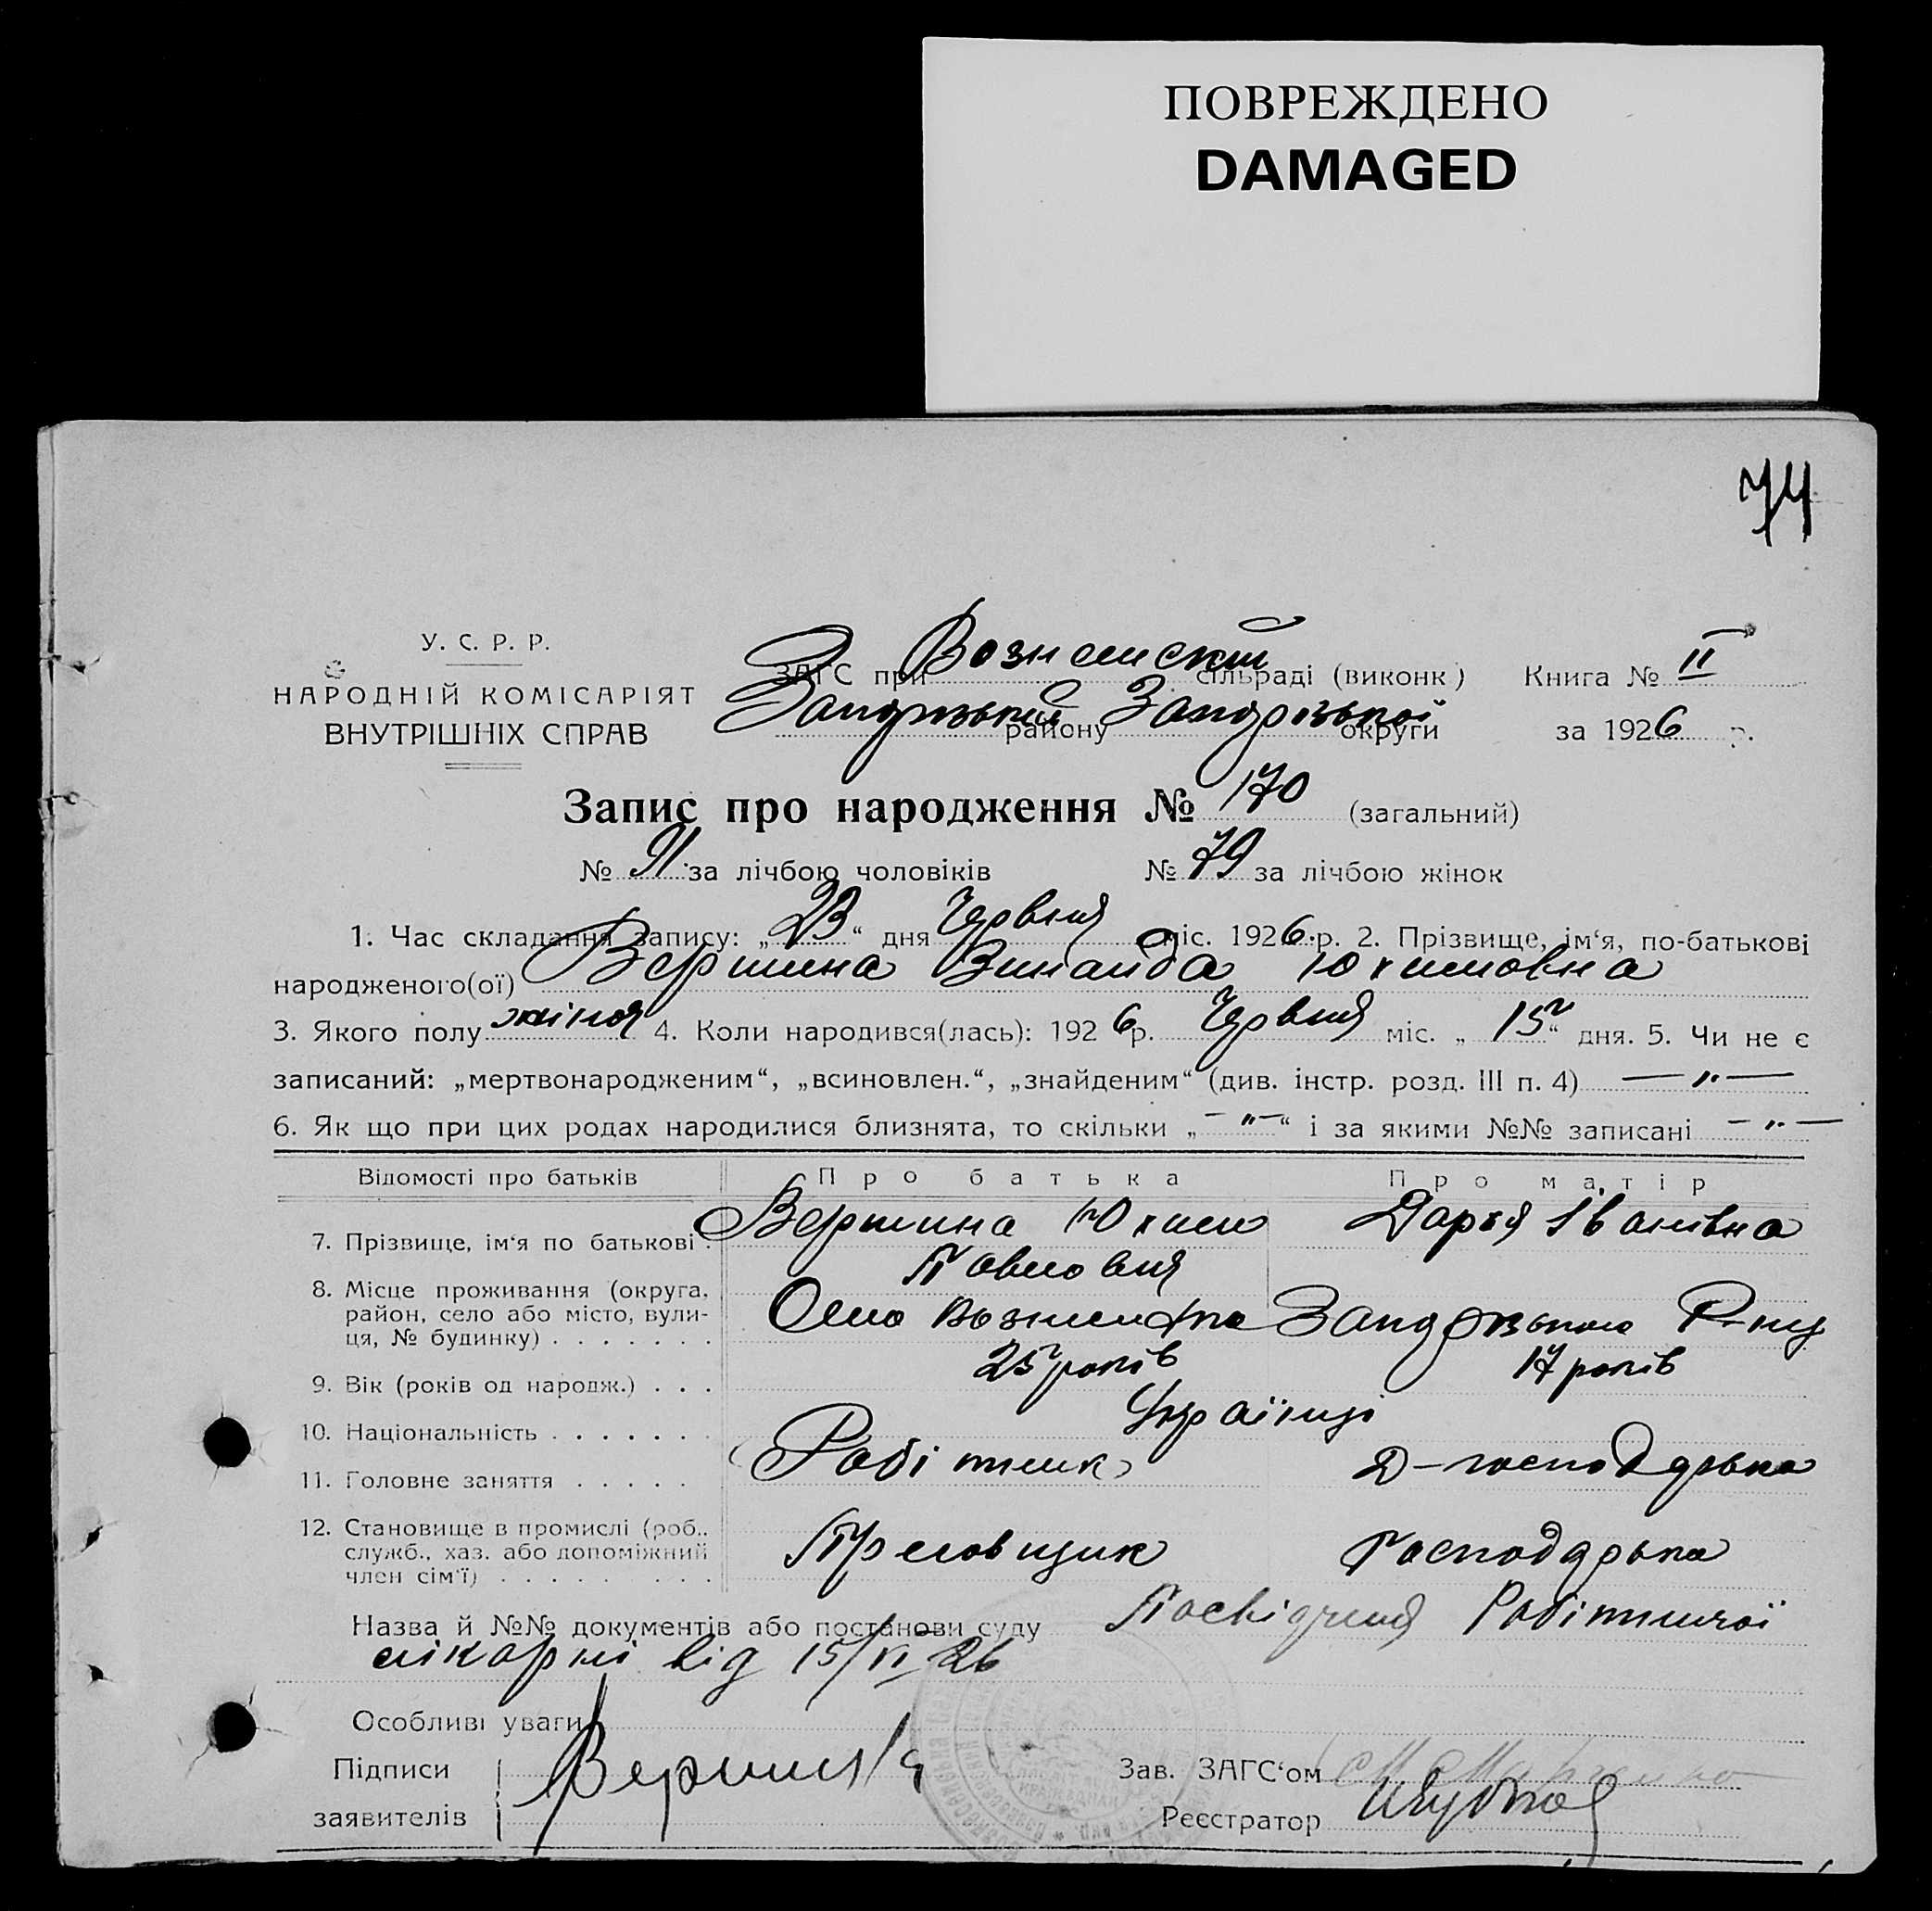 ПОВРЕЖДЕНО
DAMAGED
74
У. С. Р. Р.
НАРОДНІЙ КОМІСАРІЯТ
ВНУТРІШНІХ СПРАВ
ЗАГС при Вознесенскій сільраді (виконк) Книга № II
Запорізький району Запорізької округи за 1926 р.
Запис про народження № 170 (загальний)
№ 91 за лічбою чоловіків № 79 за лічбою жінок
1. Час складання запису: „23“ дня Червня міс. 1926 р. 2. Прізвище, ім‘я, по-батькові
народженого(ої) Вершина Зинаида Юхимовна
3. Якого полу жіноя 4. Коли народився(лась): 1926 р. Червня міс. „15“ дня. 5. Чи не є
записаний: „мертвонародженим“, „всиновлен.“, „знайденим“ (див. інстр. розд. III п. 4) — „ —
6. Як що при цих родах народилися близнята, то скільки „– „ –“ і за якими №№ записані – „ –
Відомості про батьків Про батька Про матір
7. Прізвище, ім‘я по батькові . Вершина Юхим Дарья Іванівна
Павловия
8. Місце проживання (округа,
район, село або місто, вули-
ця, № будинку) . . . . . . . Село Вознесенка Запорізького Р-ну
9. Вік (років од народж.) . . . 25 років 17 років
10. Національність . . . . . . . Українці
11. Головне заняття . . . . . Робітник Д-господарька
12. Становище в промислі (роб.,
служб., хаз. або допоміжний
член сім‘ї) . . . . . . . . . Господарька
Назва й №№ документів або постанови суду Посвідчення Робітничої
лікарні від 15/VI 26
Особливі уваги
Підписи
заявителів Вершина
Зав. ЗАГС‘ом
Реєстратор